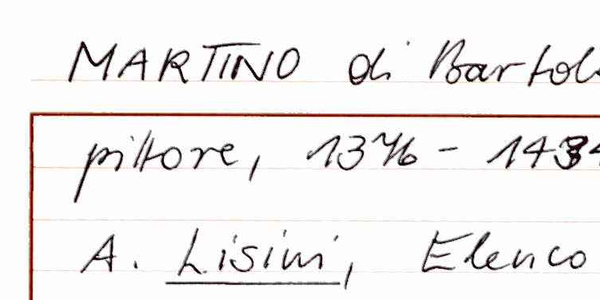 MARTINO di Bartol
pittore, 1376 - 1434
A. Lisini, Elenco